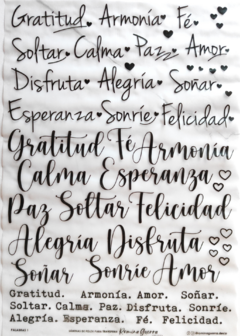 Gratitud. Armonía. Fé.
Soltar. Calma. Paz. Amor.
Disfruta. Alegría. Soñar.
Esperanza. Sonríe. Felicidad.
Gratitud Fé Armonía
Calma Esperanza
Paz Soltar Felicidad
Alegría Disfruta
Soñar Sonríe Amor
Gratitud. Armonía. Amor. Soñar.
Soltar. Calma. Paz. Disfruta. Sonríe.
Alegría. Esperanza. Fé. Felicidad.